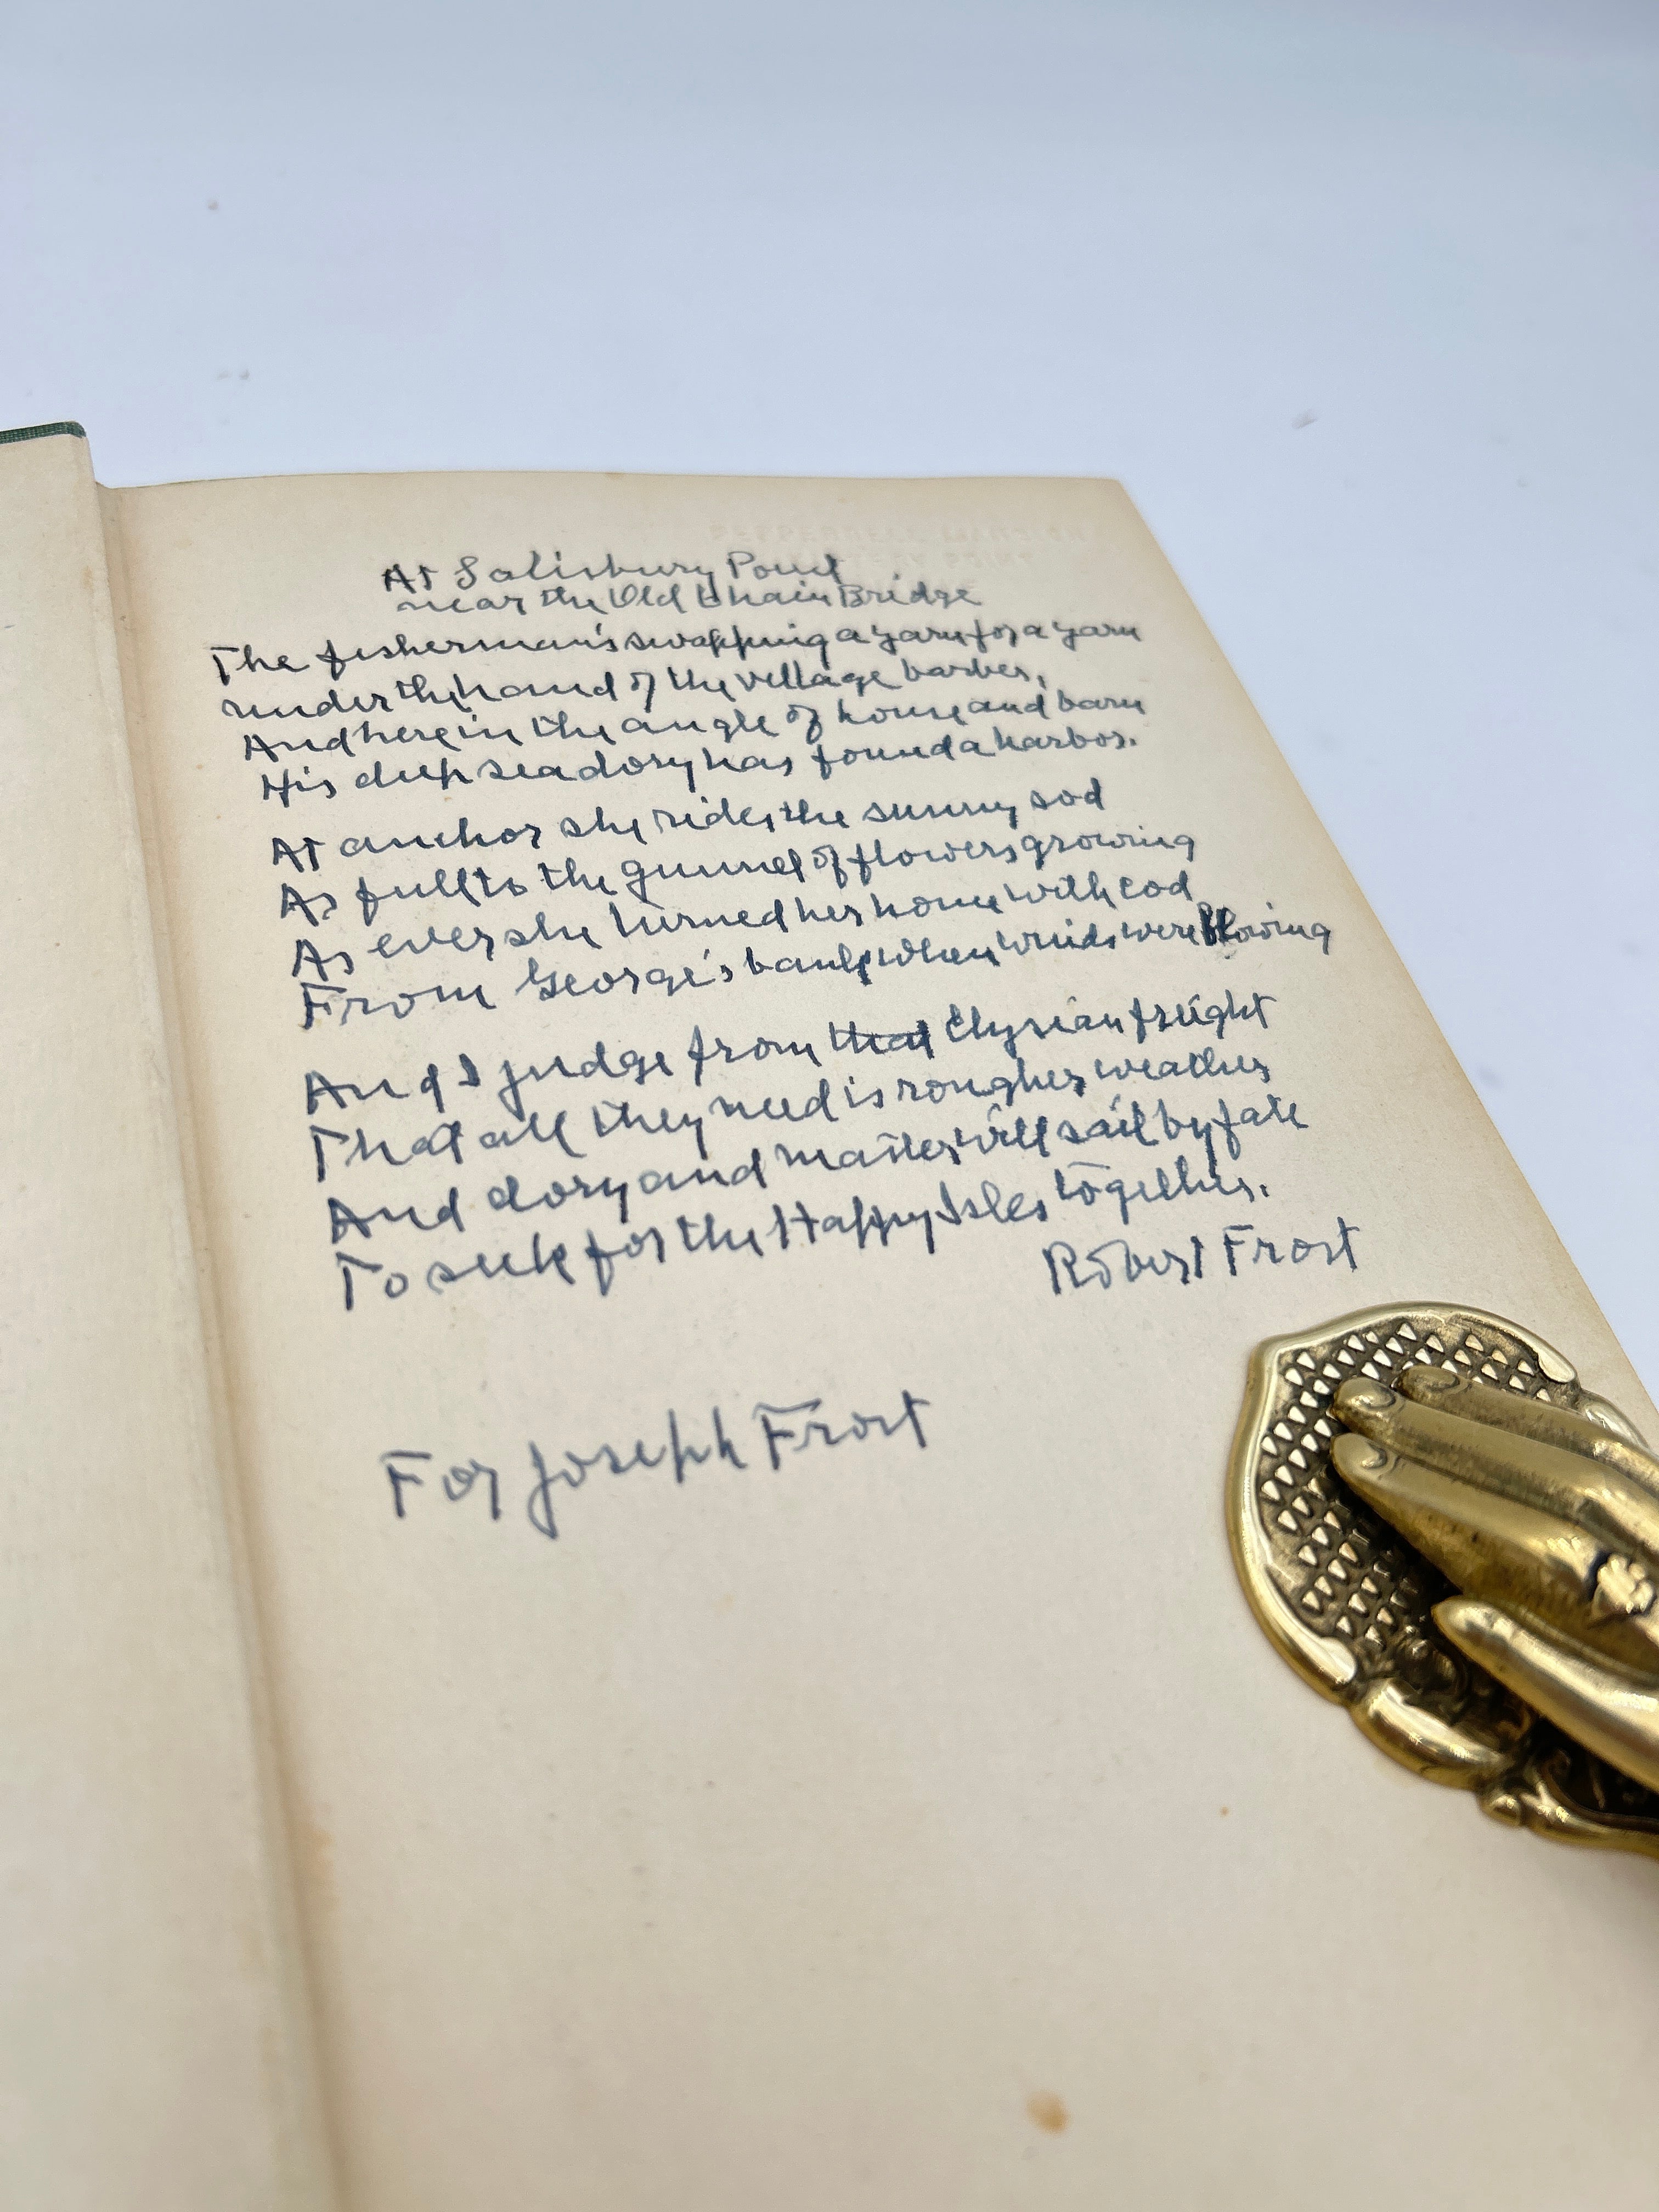 At Salisbury Pond
near the Old Chain Bridge
The fisherman's swapping a yarn for a yarn
under the hand of the village barber,
And here in the angle of house and barn
His deep sea dory has found a harbor.
At anchor she rides the sunny sod
As full to the gunnel of flowers growing
As ever she turned her home with cod
From George's bank when winds were blowing
And I judge from that Elysian freight
That all they need is rougher weather
And dory and master will sail by fate
To seek for the Happy Isles together.
Robert Frost
For Joseph Frost